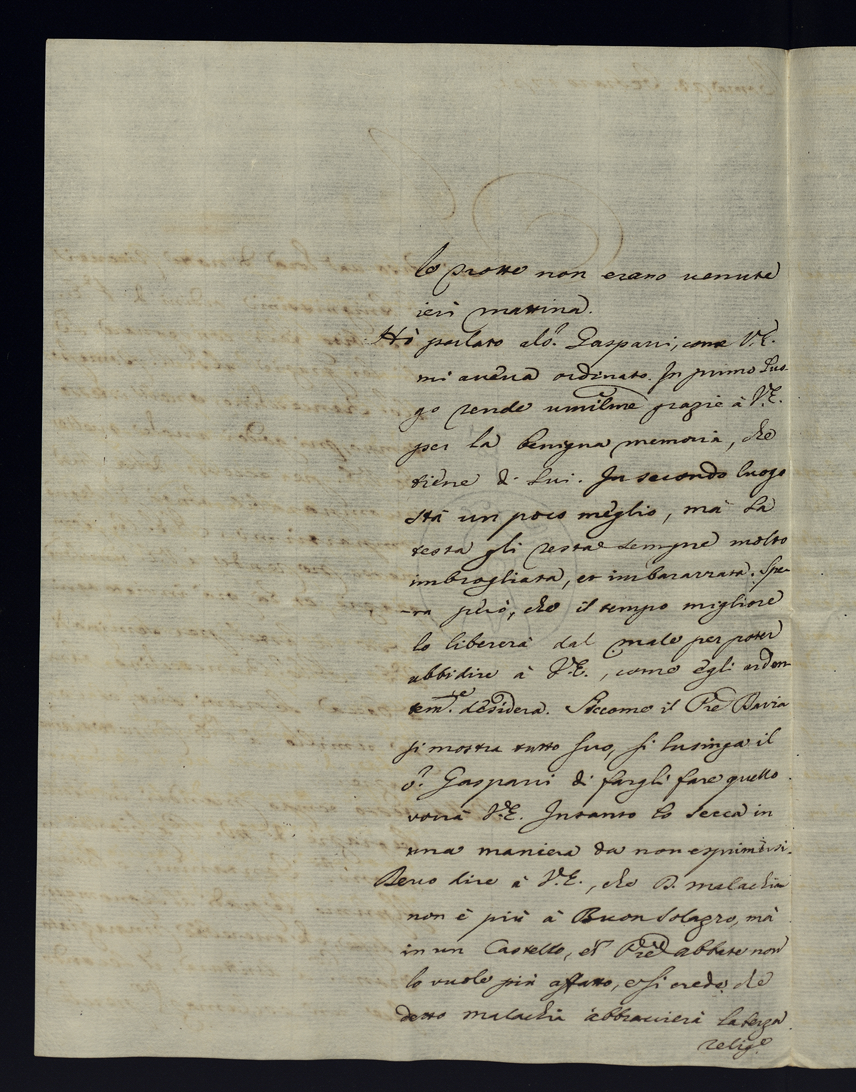 le prove non erano venute
ieri mattina.
Hò parlato al S.r Gasparri, come V.E.
mi aveva ordinato. In primo luo-
go rende umilme grazie à V.E.
per la benigna memoria, che
tiene di Lui. In secondo luogo
stà un poco meglio, mà la
testa gli resta sempre molto
imbrogliata, et imbarazzata. Spe-
-ra però, che il tempo migliore
lo libererà dal male per poter
ubbidire à V.E., come egli arden-
tem.te desidera. Siccome il Pre Bavia
si mostra tutto suo, si lusinga il
S.r Gasparri di fargli fare quello
vorrà V.E. Intanto lo secca in
una maniera da non esprimersi.
Devo dire à V.E., che D. Malachia
non è più à Buon Solazzo, mà
in un Castello, e il Pre abbate non
lo vuole più affatto, e si crede, che
detto Malachia abbraccierà la terza
relige